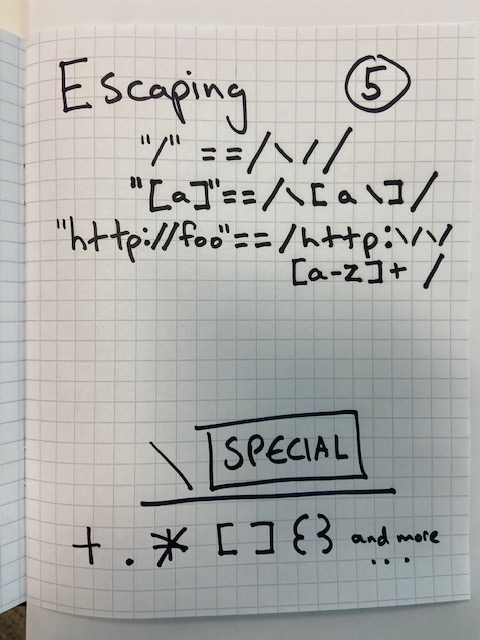 Escaping 5
"/" == /\//
"[a]" == /\[a\]/
"http://foo" == /http:\/\/
[a-z]+/
\ SPECIAL
+ . * [ ] { } and more
...